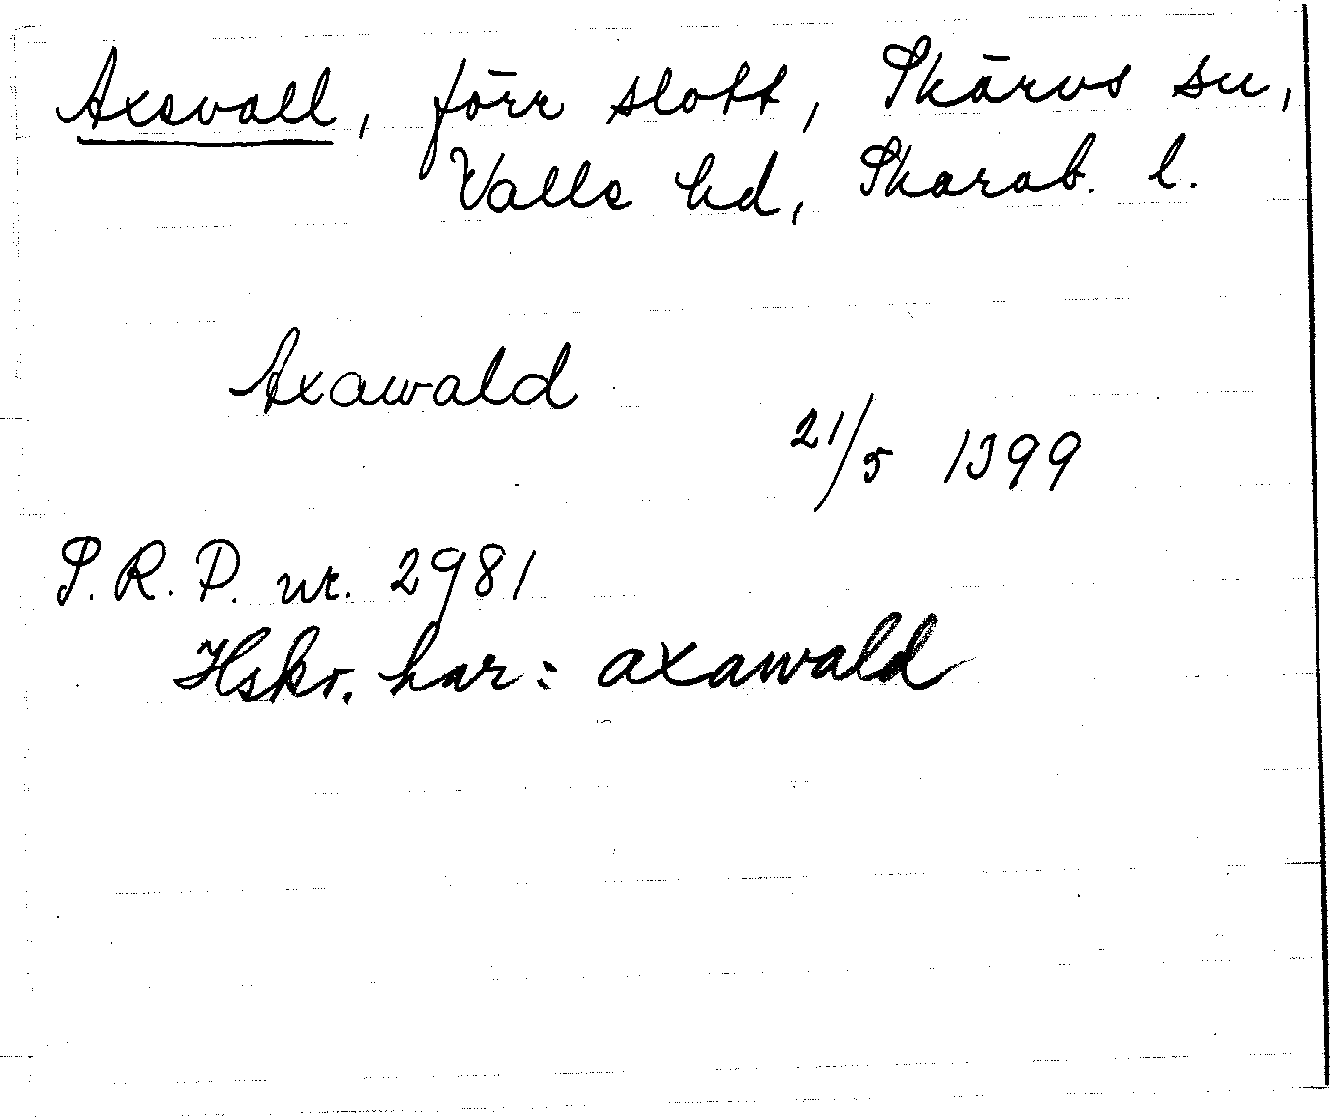 Axevall, förr slott, Skärvs sn,
Valle hd, Skarab. l.
Axawald
21/5 1399
S.R.P. nr. 2981
Hskr. har: axawald